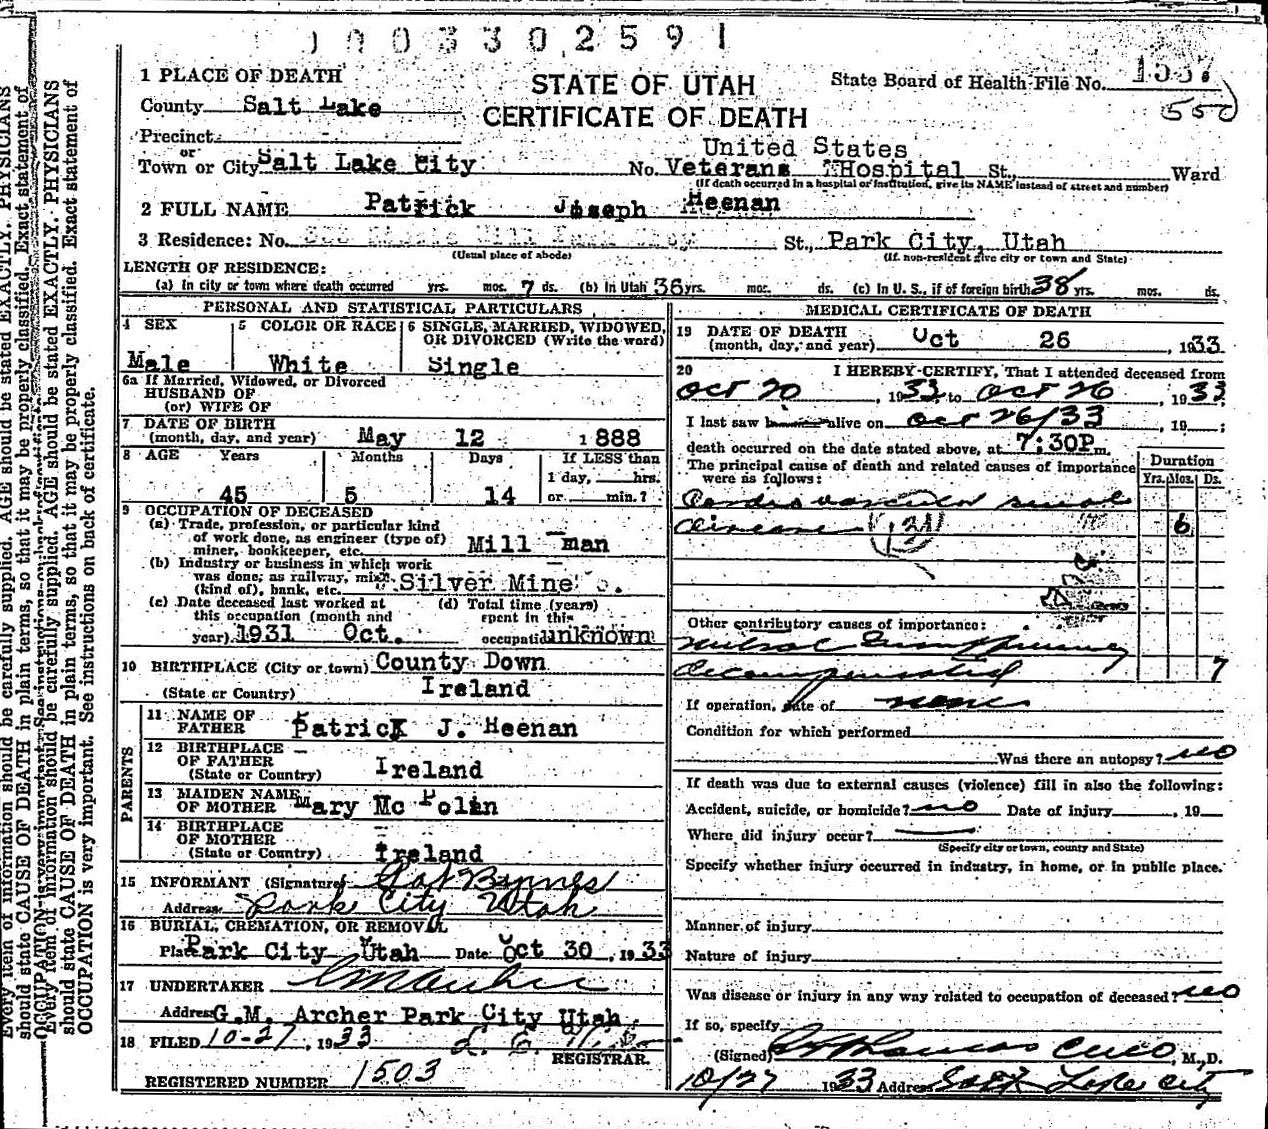 0003302591
1 PLACE OF DEATH
STATE OF UTAH
CERTIFICATE OF DEATH
State Board of Health-File No.
550
County Salt Lake
Precinct
or
Town or City Salt Lake City
United States
No. Veterans Hospital St., Ward
(If death occurred in a hospital or institution, give its NAME instead of street and number)
2 FULL NAME Patrick Joseph Heenan
3 Residence: No. St., Park City, Utah
(Usual place of abode) (If non-resident give city or town and State)
LENGTH OF RESIDENCE:
(a) In city or town where death occurred yrs. mos. 7 ds. (b) In Utah 36 yrs. mos. ds. (c) In U. S., if of foreign birth 38 yrs. mos. ds.
PERSONAL AND STATISTICAL PARTICULARS
4 SEX 5 COLOR OR RACE 6 SINGLE, MARRIED, WIDOWED, OR DIVORCED (Write the word)
Male White Single
6a If Married, Widowed, or Divorced
HUSBAND OF
(or) WIFE OF
7 DATE OF BIRTH
(month, day, and year) May 12 1888
8 AGE Years Months Days If LESS than
1 day, hrs.
45 5 14 or min.?
9 OCCUPATION OF DECEASED
(a) Trade, profession, or particular kind
of work done, as engineer (type of)
miner, bookkeeper, etc. Mill man
(b) Industry or business in which work
was done; as railway, mine
(kind of), bank, etc. Silver Mine
(c) Date deceased last worked at (d) Total time (years)
this occupation (month and spent in this
year) 1931 Oct. occupation unknown
10 BIRTHPLACE (City or town) County Down
(State or Country) Ireland
PARENTS
11 NAME OF
FATHER Patrick J. Heenan
12 BIRTHPLACE
OF FATHER
(State or Country) Ireland
13 MAIDEN NAME
OF MOTHER Mary Mc Polin
14 BIRTHPLACE
OF MOTHER
(State or Country) Ireland
15 INFORMANT (Signature) Byrnes
Address Park City Utah
16 BURIAL, CREMATION, OR REMOVAL
Place Park City Utah Date Oct 30, 1933
17 UNDERTAKER
Address G.M. Archer Park City Utah.
18 FILED 10-27, 1933
REGISTRAR.
REGISTERED NUMBER 1503
MEDICAL CERTIFICATE OF DEATH
19 DATE OF DEATH
(month, day, and year) Oct 26, 1933
20 I HEREBY CERTIFY, That I attended deceased from
Oct 20, 1933 to Oct 26, 1933;
I last saw alive on Oct 26/33, 19 ;
death occurred on the date stated above, at 7:30P m.
The principal cause of death and related causes of importance
were as follows:
Duration
Yrs. Mos. Ds.
Cardio vascular renal
disease
6
Other contributory causes of importance:
Mitral
decompensated 7
If operation, date of none
Condition for which performed
Was there an autopsy? no
If death was due to external causes (violence) fill in also the following:
Accident, suicide, or homicide? no Date of injury , 19
Where did injury occur?
(Specify city or town, county and State)
Specify whether injury occurred in industry, in home, or in public place.
Manner of injury
Nature of injury
Was disease or injury in any way related to occupation of deceased? no
If so, specify
(Signed) M., D.
10/27 1933 Address Salt Lake City
Every item of information should be carefully supplied. AGE should be stated EXACTLY. PHYSICIANS
should state CAUSE OF DEATH in plain terms, so that it may be properly classified. Exact statement of
Every item of information should be carefully supplied. AGE should be stated EXACTLY. PHYSICIANS
should state CAUSE OF DEATH in plain terms, so that it may be properly classified. Exact statement of
OCCUPATION is very important. See instructions on back of certificate.